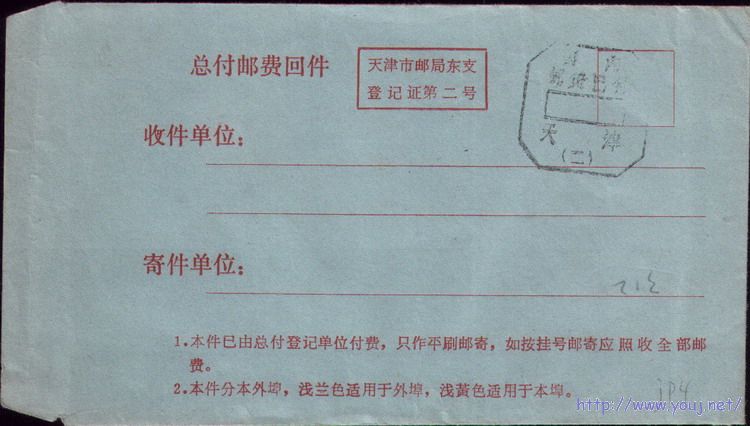 总付邮费回件
天津市邮局东支
登记证第二号
国内
邮资已付
天津
(二)
收件单位：
寄件单位：
1.本件已由总付登记单位付费，只作平刷邮寄，如按挂号邮寄应照收全部邮
费。
2.本件分本外埠，浅兰色适用于外埠，浅黄色适用于本埠。
http://www.youj.net/